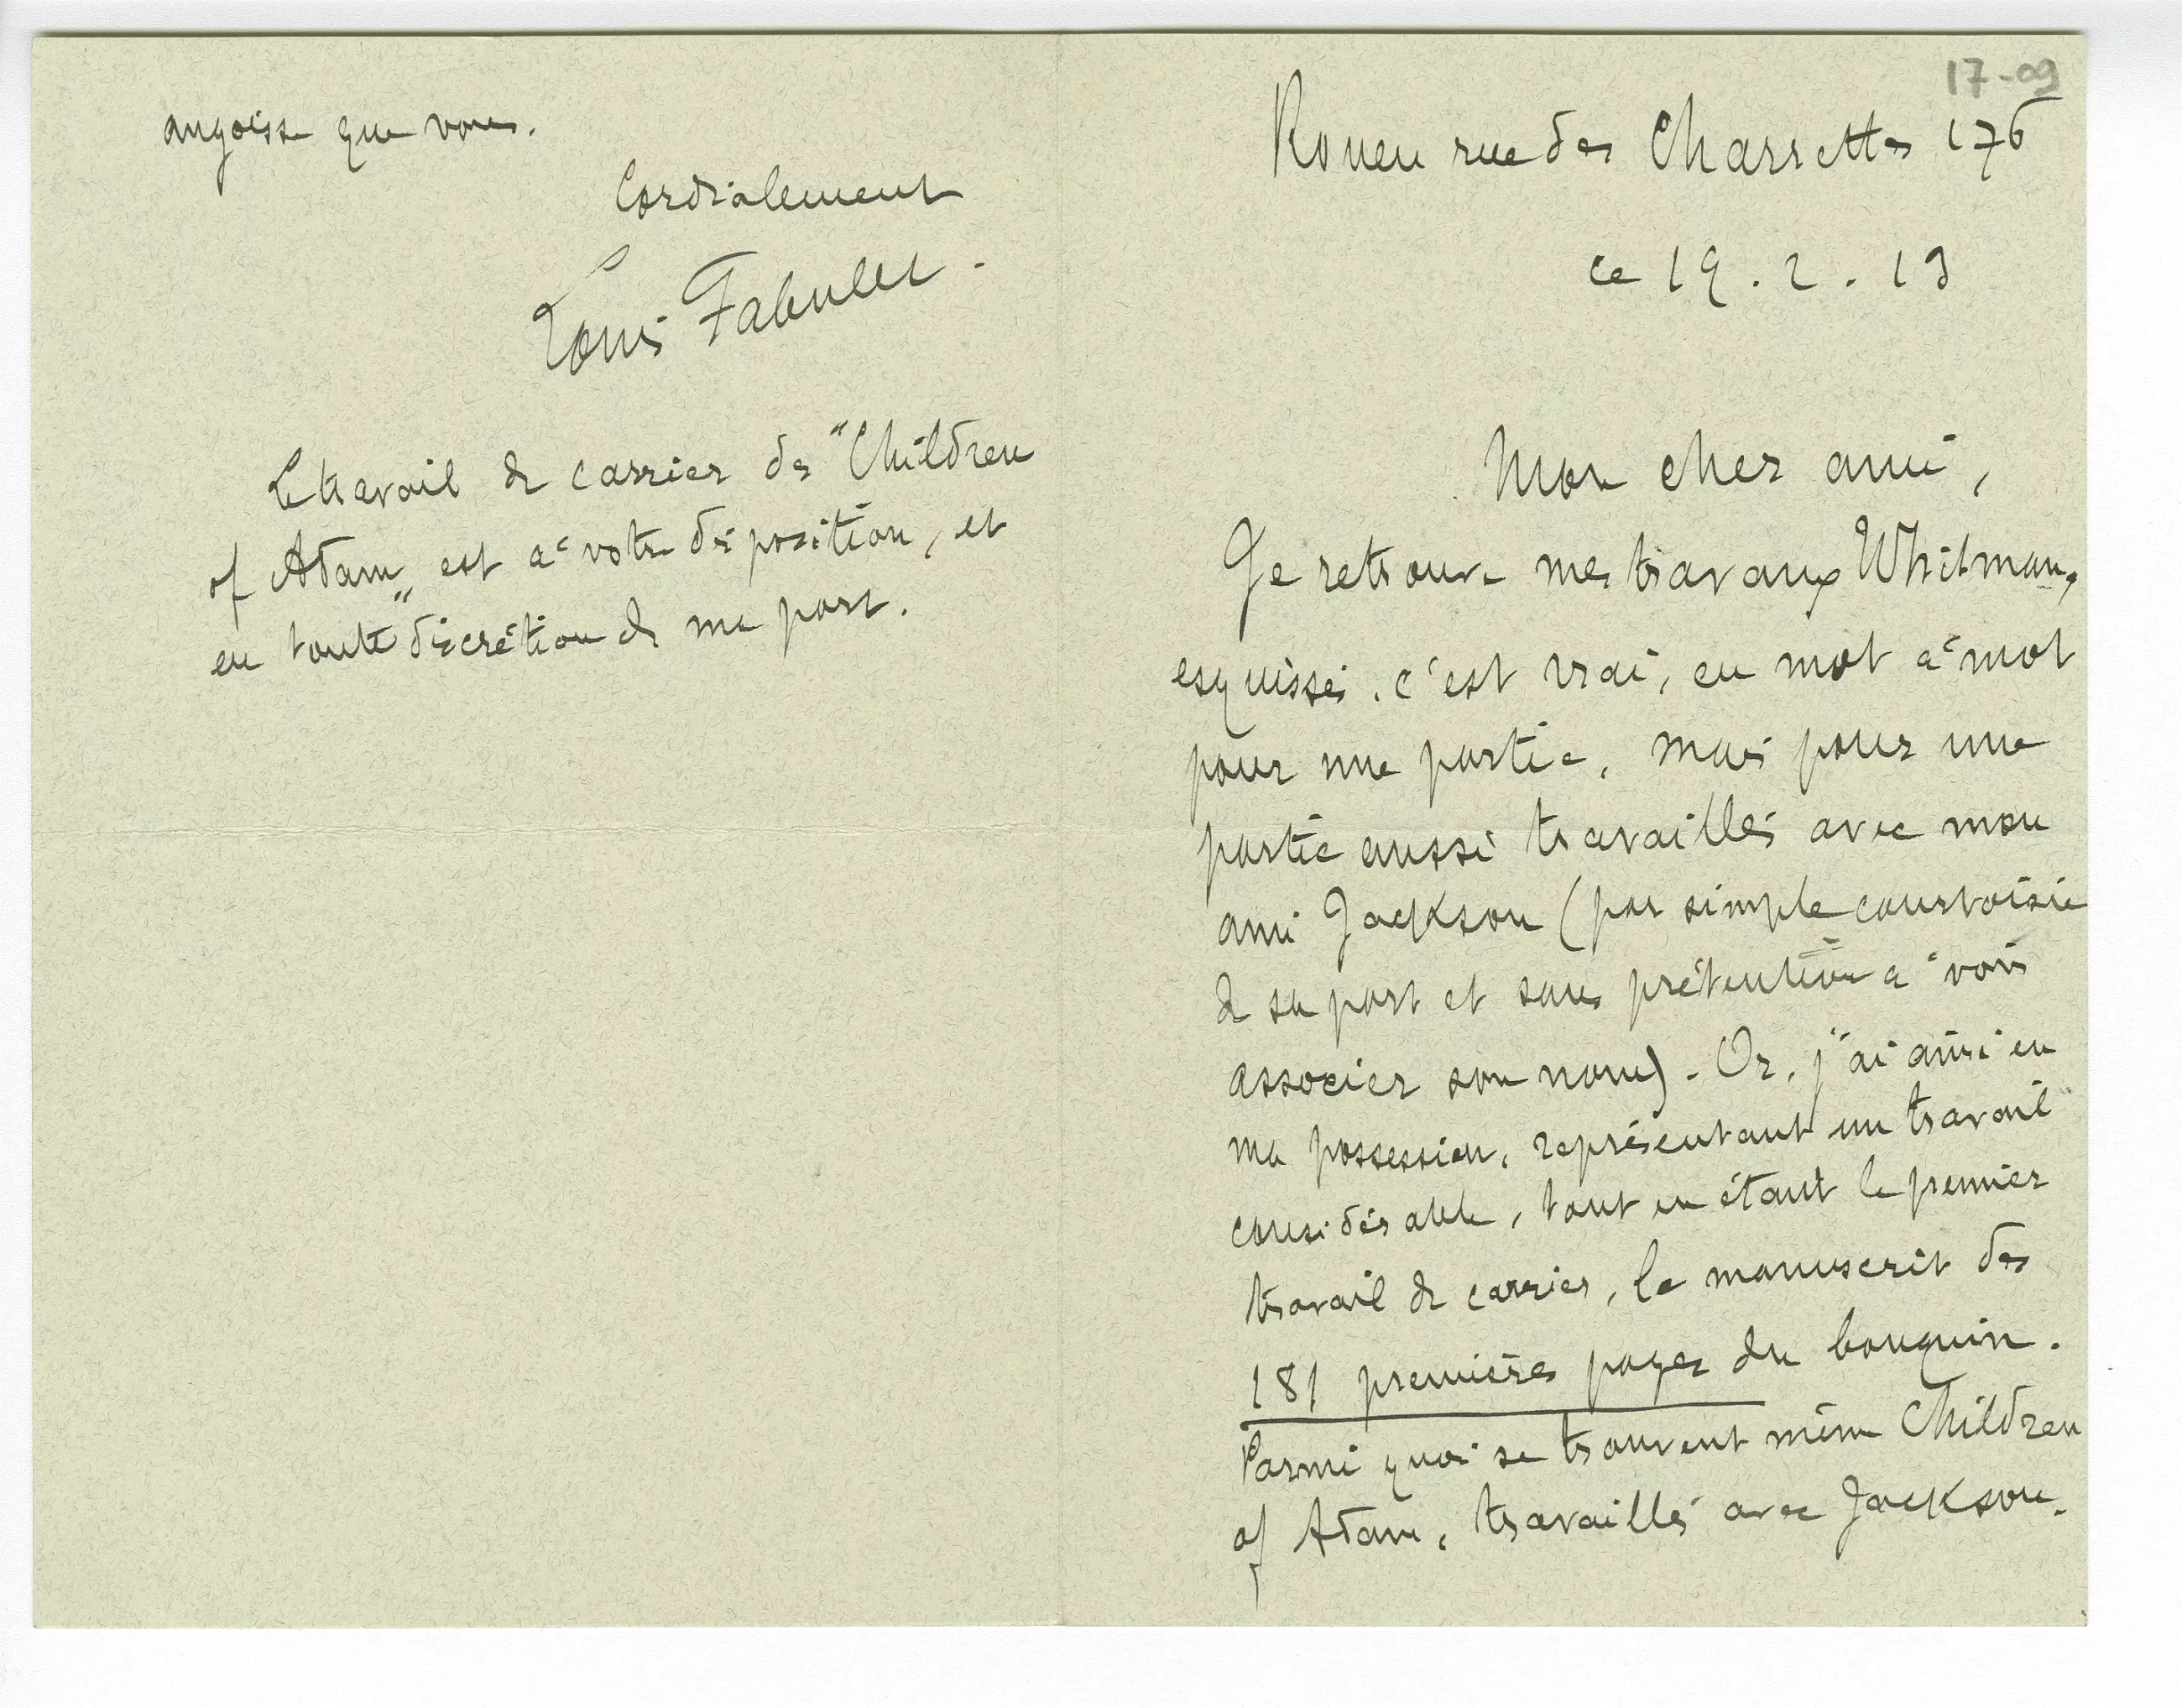 17-09
Rouen rue des Charrettes 176
ce 19 . 2 . 13
Mon cher ami,
Je retrouve mes travaux Whitman,
esquissés, c'est vrai, en mot à mot
pour une partie, mais pour une
partie aussi travaillés avec mon
ami Jackson (par simple courtoisie
de sa part et sans prétention à voir
associer son nom). Or, j'ai ainsi en
ma possession, représentant un travail
considérable, tout en étant le premier
travail de carrier, le manuscrit des
181 premières pages du bouquin.
Parmi quoi se trouvent même Children
of Adam, travaillés avec Jackson.
angoisse que vous.
Cordialement
Louis Fabulet.
Le travail de carrier des "Children
of Adam" est à votre disposition, et
en toute discrétion de ma part.